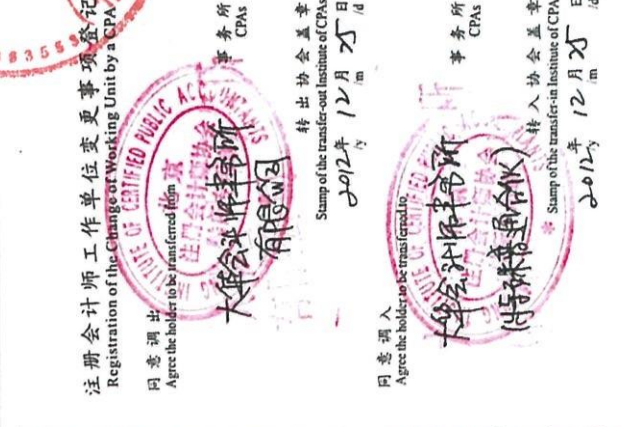 注册会计师工作单位变更事项登记
Registration of the Change of Working Unit by a CPA
同意调出
Agree the holder to be transferred from
大华会计师事务所
有限公司
事务所
CPAs
转出协会盖章
Stamp of the transfer-out Institute of CPAs
2012年 12月 25日
/y /m /d
同意调入
Agree the holder to be transferred to
大华会计师事务所
(特殊普通合伙)
事务所
CPAs
转入协会盖章
Stamp of the transfer-in Institute of CPAs
2012年 12月 25日
/y /m /d
INSTITUTE OF CERTIFIED PUBLIC ACCOUNTANTS
注册会计师协会
83558